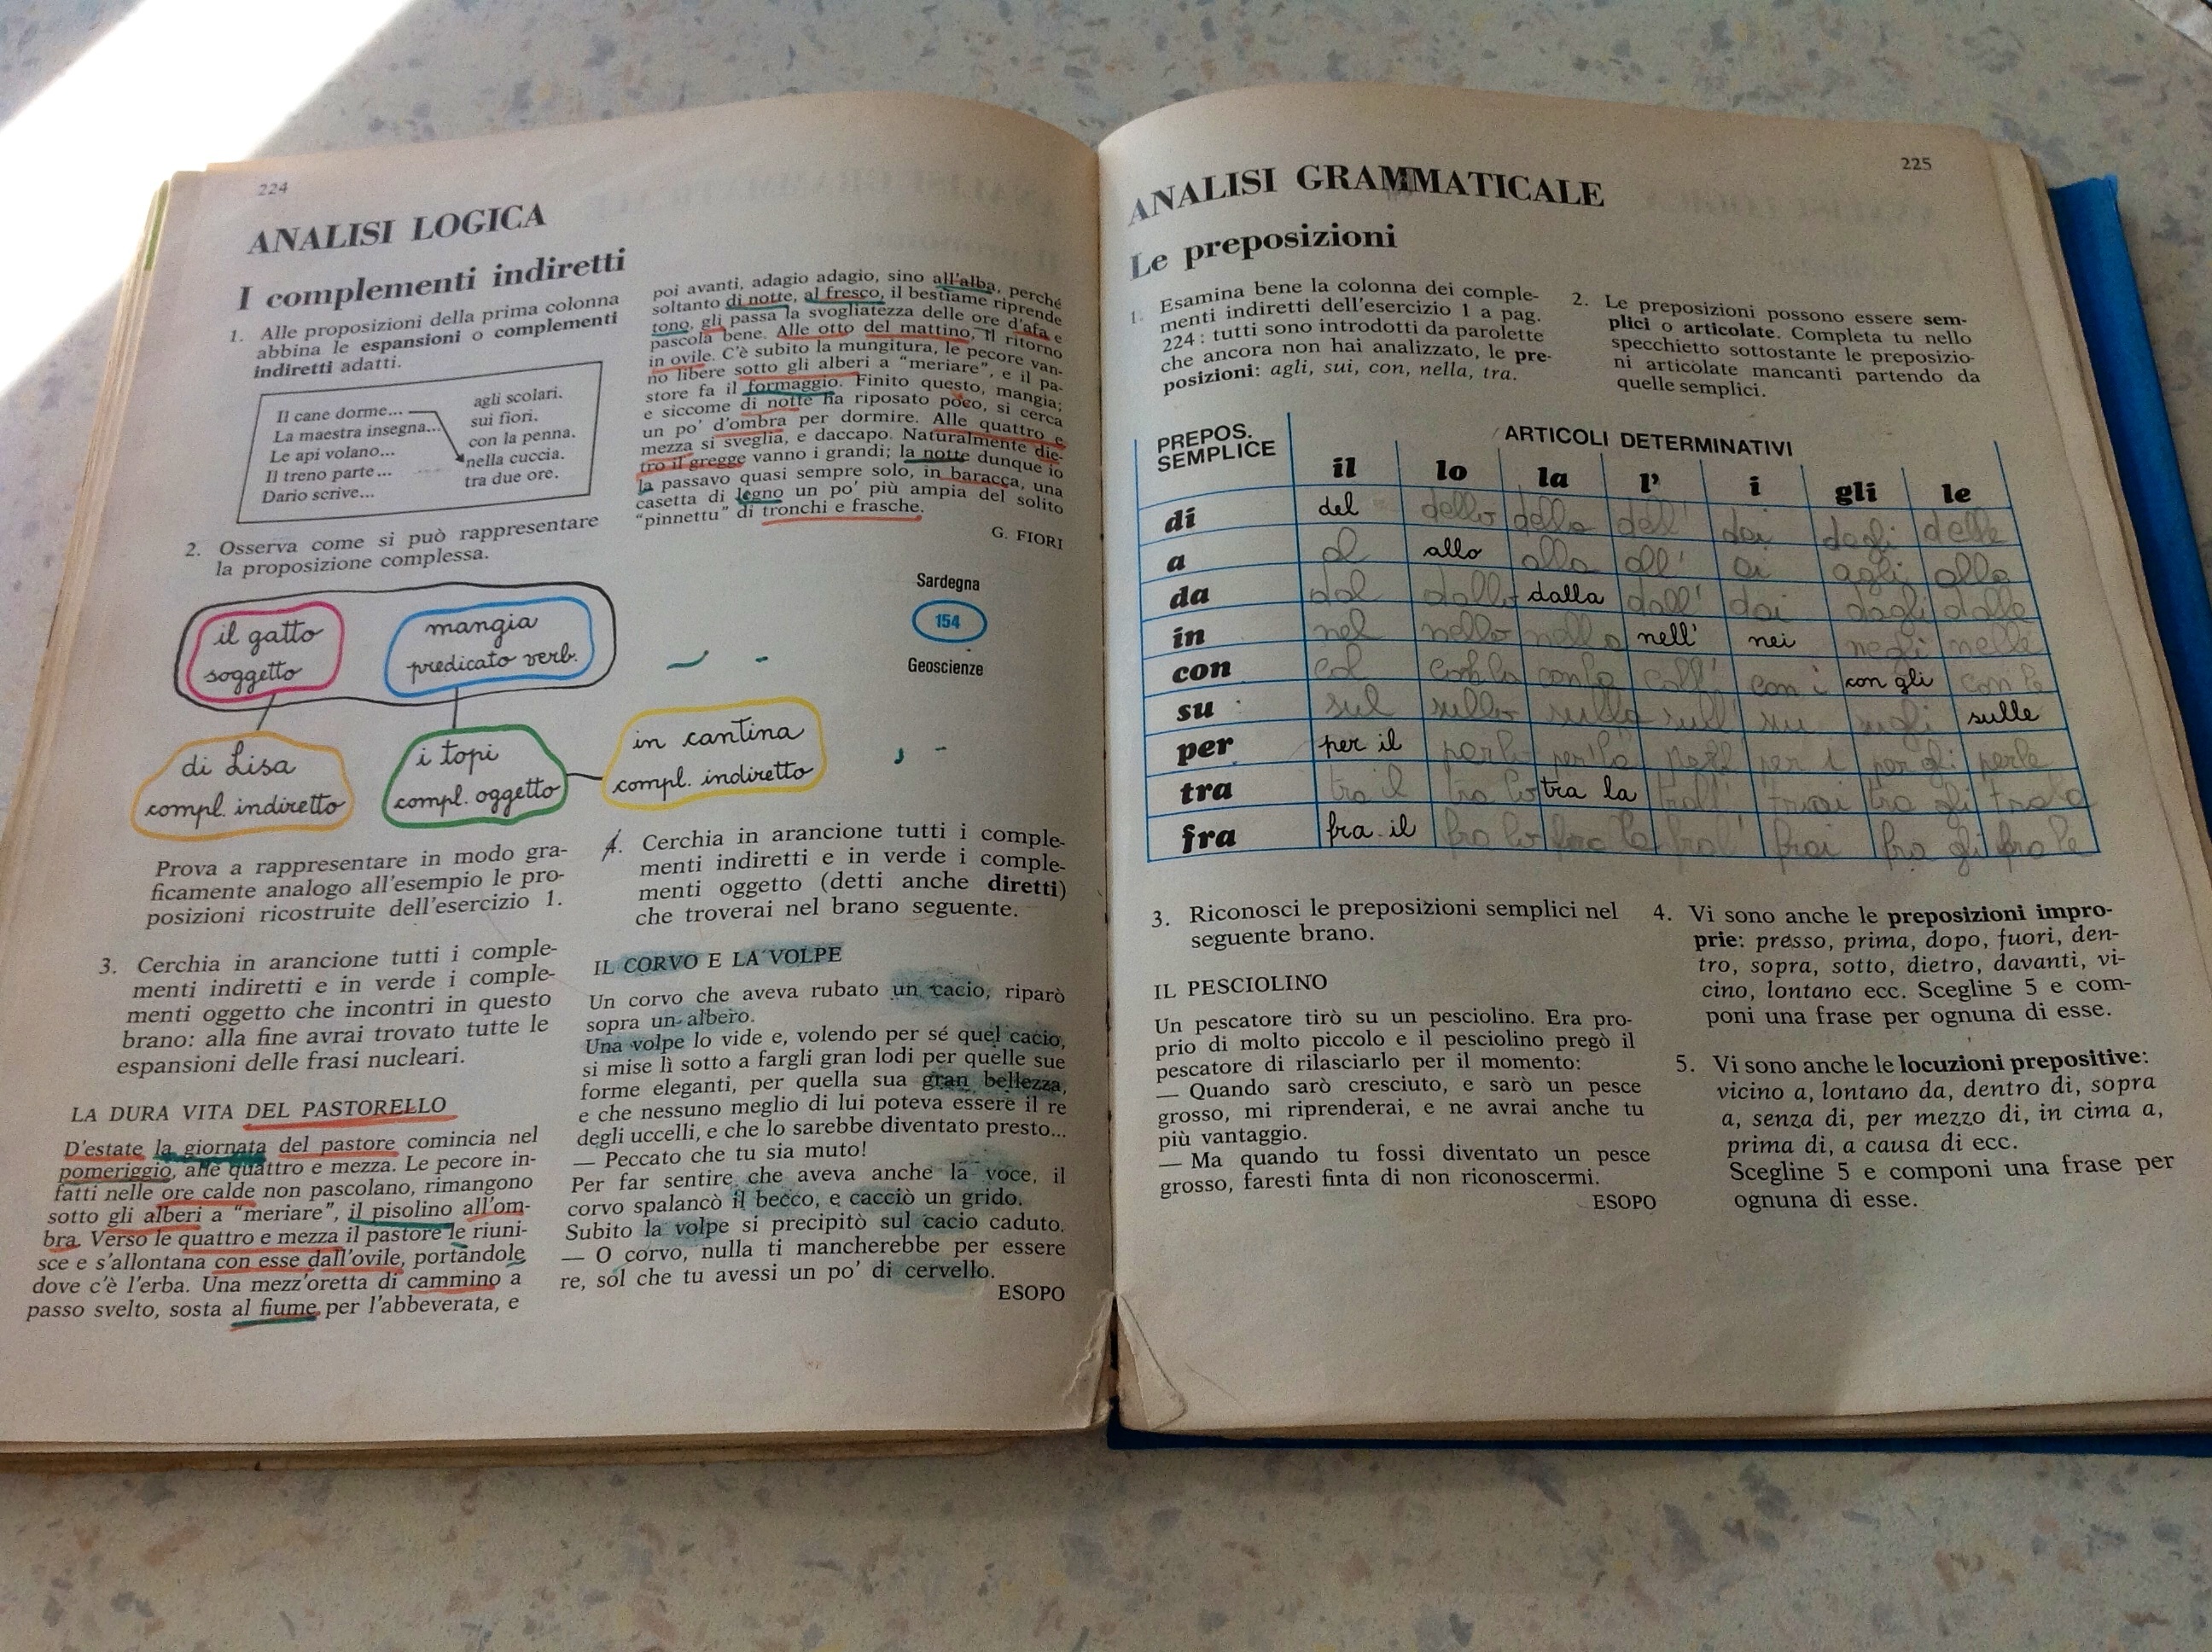 224
ANALISI LOGICA
I complementi indiretti
1. Alle proposizioni della prima colonna
abbina le espansioni o complementi
indiretti adatti.
Il cane dorme... agli scolari.
La maestra insegna... sui fiori.
Le api volano... con la penna.
Il treno parte... nella cuccia.
Dario scrive... tra due ore.
2. Osserva come si può rappresentare
la proposizione complessa.
il gatto
soggetto
mangia
predicato verb.
di Lisa
compl. indiretto
i topi
compl. oggetto
in cantina
compl. indiretto
Prova a rappresentare in modo gra-
ficamente analogo all'esempio le pro-
posizioni ricostruite dell'esercizio 1.
3. Cerchia in arancione tutti i comple-
menti indiretti e in verde i comple-
menti oggetto che incontri in questo
brano: alla fine avrai trovato tutte le
espansioni delle frasi nucleari.
LA DURA VITA DEL PASTORELLO
D'estate la giornata del pastore comincia nel
pomeriggio, alle quattro e mezza. Le pecore in-
fatti nelle ore calde non pascolano, rimangono
sotto gli alberi a "meriare", il pisolino all'om-
bra. Verso le quattro e mezza il pastore le riuni-
sce e s'allontana con esse dall'ovile, portandole
dove c'è l'erba. Una mezz'oretta di cammino a
passo svelto, sosta al fiume per l'abbeverata, e
poi avanti, adagio adagio, sino all'alba, perché
soltanto di notte, al fresco, il bestiame riprende
tono, gli passa la svogliatezza delle ore d'afa e
pascola bene. Alle otto del mattino, il ritorno
in ovile. C'è subito la mungitura, le pecore van-
no libere sotto gli alberi a "meriare", e il pa-
store fa il formaggio. Finito questo, mangia;
e siccome di notte ha riposato poco, si cerca
un po' d'ombra per dormire. Alle quattro e
mezza si sveglia, e daccapo. Naturalmente die-
tro il gregge vanno i grandi; la notte dunque io
la passavo quasi sempre solo, in baracca, una
casetta di legno un po' più ampia del solito
"pinnettu" di tronchi e frasche.
G. FIORI
Sardegna
154
Geoscienze
4. Cerchia in arancione tutti i comple-
menti indiretti e in verde i comple-
menti oggetto (detti anche diretti)
che troverai nel brano seguente.
IL CORVO E LA VOLPE
Un corvo che aveva rubato un cacio, riparò
sopra un albero.
Una volpe lo vide e, volendo per sé quel cacio,
si mise lì sotto a fargli gran lodi per quelle sue
forme eleganti, per quella sua gran bellezza,
e che nessuno meglio di lui poteva essere il re
degli uccelli, e che lo sarebbe diventato presto...
— Peccato che tu sia muto!
Per far sentire che aveva anche la voce, il
corvo spalancò il becco, e cacciò un grido.
Subito la volpe si precipitò sul cacio caduto.
— O corvo, nulla ti mancherebbe per essere
re, sol che tu avessi un po' di cervello.
ESOPO
225
ANALISI GRAMMATICALE
Le preposizioni
1. Esamina bene la colonna dei comple-
menti indiretti dell'esercizio 1 a pag.
224: tutti sono introdotti da parolette
che ancora non hai analizzato, le pre-
posizioni: agli, sui, con, nella, tra.
2. Le preposizioni possono essere sem-
plici o articolate. Completa tu nello
specchietto sottostante le preposizio-
ni articolate mancanti partendo da
quelle semplici.
PREPOS. SEMPLICE ARTICOLI DETERMINATIVI
il lo la l' i gli le
di del dello della dell' dai degli delle
a al allo alla all' ai agli alla
da dal dallo dalla dall' dai dagli dalle
in nel nello nella nell' nei negli nelle
con col con lo con la coll' con i con gli con le
su sul sullo sulla sull' su sugli sulle
per per il per lo per la per i per gli per le
tra tra il tra lo tra la trall' tra i tra gli
fra fra il fra lo fra la frai fra gli fra le
3. Riconosci le preposizioni semplici nel
seguente brano.
IL PESCIOLINO
Un pescatore tirò su un pesciolino. Era pro-
prio di molto piccolo e il pesciolino pregò il
pescatore di rilasciarlo per il momento:
— Quando sarò cresciuto, e sarò un pesce
grosso, mi riprenderai, e ne avrai anche tu
più vantaggio.
— Ma quando tu fossi diventato un pesce
grosso, faresti finta di non riconoscermi.
ESOPO
4. Vi sono anche le preposizioni impro-
prie: presso, prima, dopo, fuori, den-
tro, sopra, sotto, dietro, davanti, vi-
cino, lontano ecc. Scegline 5 e com-
poni una frase per ognuna di esse.
5. Vi sono anche le locuzioni prepositive:
vicino a, lontano da, dentro di, sopra
a, senza di, per mezzo di, in cima a,
prima di, a causa di ecc.
Scegline 5 e componi una frase per
ognuna di esse.